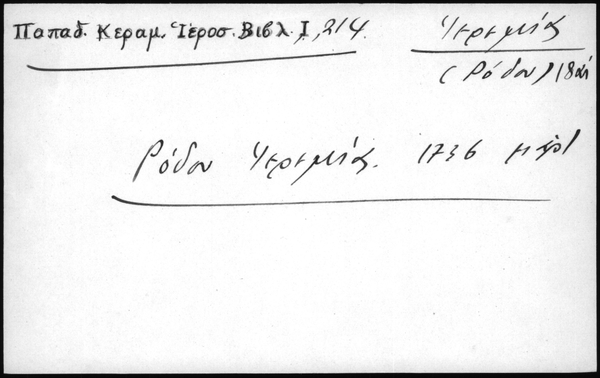 Παπαδ. Κεραμ. Ἱεροσ. Βιβλ. Ι, 214.
Ἱερεμίας
(Ρόδου) 18 αἰ
Ρόδου Ἱερεμίας. 1736